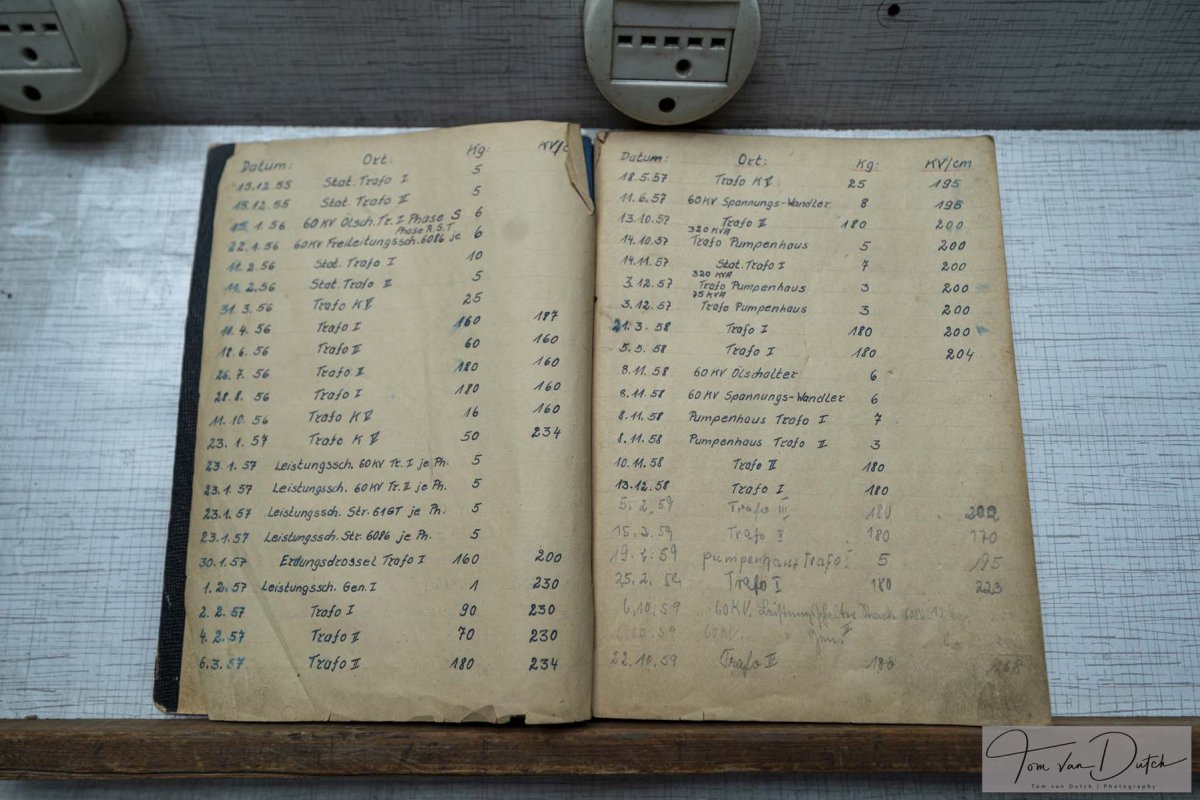 Datum: Ort: Kg: KV/c
15.12.55 Stat. Trafo I 5
15.12.55 Stat. Trafo II 5
15.1.56 60 KV Ölsch. Tr. I Phase S 6
Phase R.S.T
22.1.56 60KV Freileitungssch. 6086 je 6
11.2.56 Stat. Trafo I 10
11.2.56 Stat. Trafo II 5
31.3.56 Trafo K 25
11.4.56 Trafo I 160 187
18.6.56 Trafo II 60 160
26.7.56 Trafo II 180 160
28.8.56 Trafo I 180 160
11.10.56 Trafo K 16 160
23.1.57 Trafo K 50 234
23.1.57 Leistungssch. 60KV Tr. I je Ph. 5
23.1.57 Leistungssch. 60KV Tr. II je Ph. 5
23.1.57 Leistungssch. Str. 61GT je Ph. 5
23.1.57 Leistungssch. Str. 6086 je Ph. 5
30.1.57 Erdungsdrossel Trafo I 160 200
1.2.57 Leistungssch. Gen. I 1 230
2.2.57 Trafo I 90 230
4.2.57 Trafo II 70 230
6.3.57 Trafo II 180 234
Datum: Ort: Kg: KV/cm
18.5.57 Trafo K 25 195
11.6.57 60KV Spannungs-Wandler 8 195
13.10.57 Trafo II 180 200
320 KVA
14.10.57 Trafo Pumpenhaus 5 200
14.11.57 Stat. Trafo I 7 200
320 KVA
3.12.57 Trafo Pumpenhaus 3 200
75 KVA
3.12.57 Trafo Pumpenhaus 3 200
21.3.58 Trafo I 180 200
5.5.58 Trafo I 180 204
8.11.58 60 KV Ölschalter 6
8.11.58 60KV Spannungs-Wandler 6
8.11.58 Pumpenhaus Trafo I 7
8.11.58 Pumpenhaus Trafo II 3
10.11.58 Trafo II 180
13.12.58 Trafo I 180
5.2.59 Trafo 180 202
15.2.59 Trafo 180 170
59 Pumpenhaus Trafo 5 195
25.2. Trafo I 180 223
6.10.59 60KV. Leistungsschalter
6.10.59 60KV "
22.10.59 Trafo II 180
Tom van Dutch
Tom van Dutch | Photography